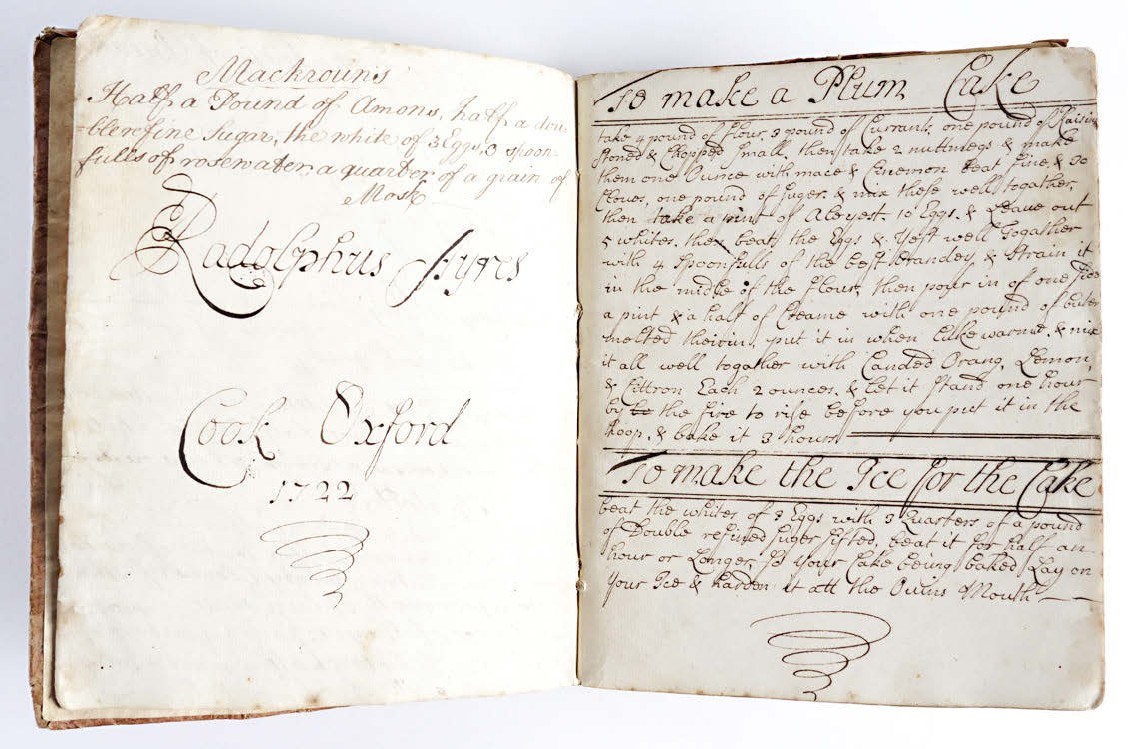 Mackrouns
Half a Pound of Amons, half a dou
=blerefine Sugar, the white of 3 Eggs, 3 spoon=
fulls of rosewater, a quarter of a grain of
Mosk
Radolphus Ayres
Cook Oxford
1722
To make a Plum Cake
take 4 pound of flour, 3 pound of Currants, one pound of Raisins
Stoned & Chopped Small, then take 2 nuttmegs & make
them one Ounce with mace & Cinemon beat fine, & 30
Cloves, one pound of Suger, & mix these well together,
then take a pint of Aleyest 10 Eggs, & Leave out
5 whites, then beat the Eggs & Yest well Together
with 4 Spoonfulls of the best Brandey & Strain it
in the midle of the flour, then pour in of one side
a pint & a half of Creame with one pound of buter
melted theirin, put it in when lukewarme, & mix
it all well together with Canded Orang, Lemon,
& Cittron Each 2 ounces, & let it Stand one hour
by the fire to rise before you put it in the
hoop, & bake it 3 hours
To make the Ice for the Cake
beat the whites of 3 Eggs with 3 Quarters of a pound
of Double refined Suger sifted, beat it for half an
hour or Longer, so your Cake being baked Lay on
Your Ice & harden it att the Ovins Mouth